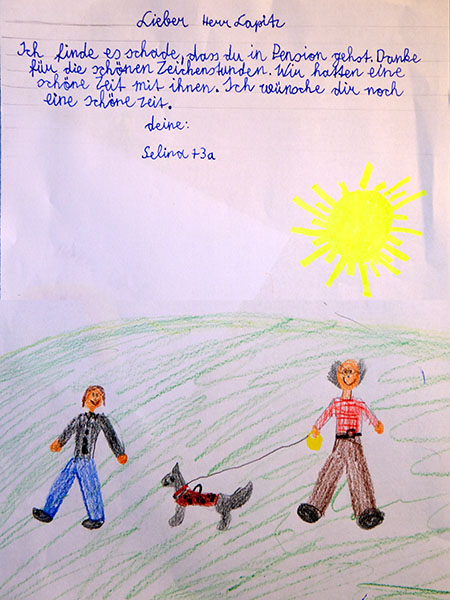 Lieber Herr Lapitz
Ich finde es schade, dass du in Pension gehst. Danke
für die schönen Zeichenstunden. Wir hatten eine
schöne Zeit mit ihnen. Ich wünsche dir noch
eine schöne zeit.
deine:
Selina +3a